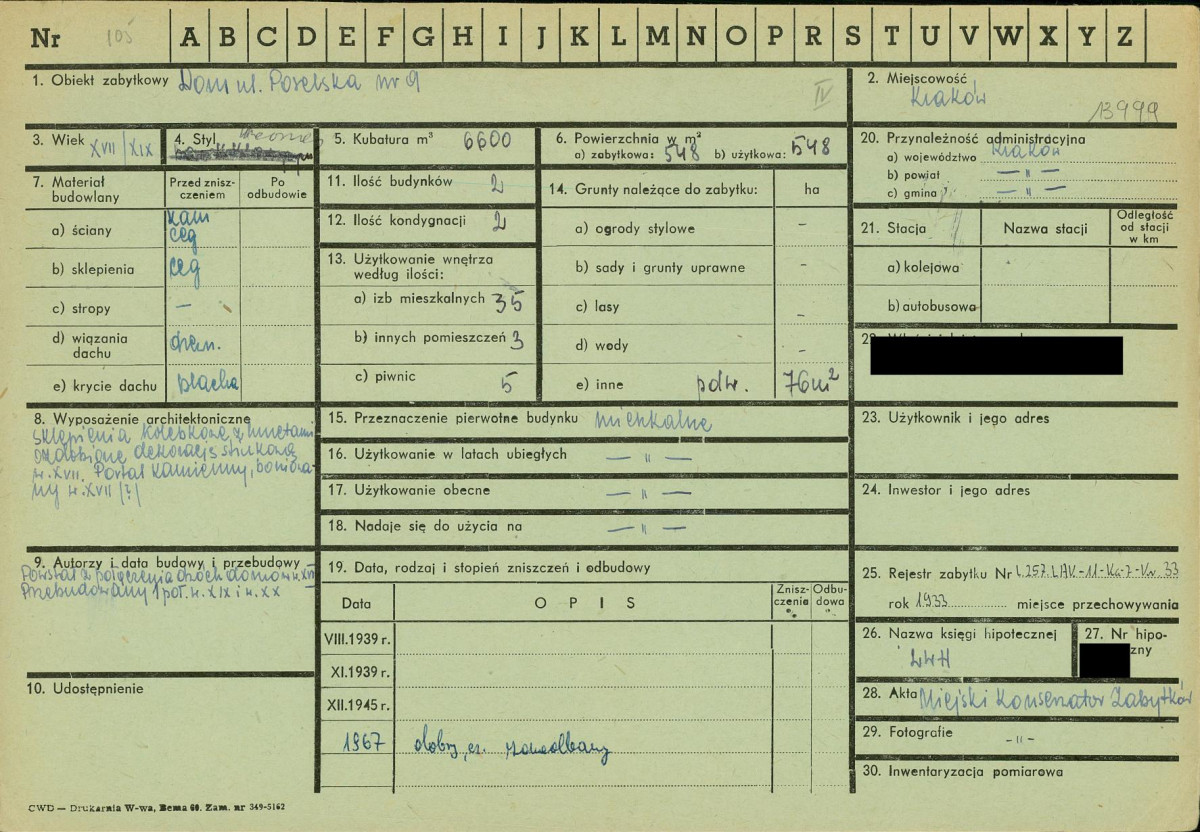 Nr 105 A B C D E F G H I J K L M N O P R S T U V W X Y Z
1. Obiekt zabytkowy Dom ul. Poselska nr 9
IV
2. Miejscowość
Kraków
13999
3. Wiek XVII/XIX
4. Styl
5. Kubatura m³ 6600
6. Powierzchnia w m²
a) zabytkowa: 548 b) użytkowa: 548
20. Przynależność administracyjna
a) województwo Kraków
b) powiat — " —
c) gmina — " —
7. Materiał
budowlany
Przed znisz-
czeniem
Po
odbudowie
a) ściany kam
ceg
b) sklepienia ceg
c) stropy —
d) wiązania
dachu drew.
e) krycie dachu blacha
11. Ilość budynków 2
12. Ilość kondygnacji 2
13. Użytkowanie wnętrza
według ilości:
a) izb mieszkalnych 35
b) innych pomieszczeń 3
c) piwnic 5
14. Grunty należące do zabytku: ha
a) ogrody stylowe –
b) sady i grunty uprawne –
c) lasy –
d) wody –
e) inne podw. 76m²
21. Stacja Nazwa stacji
Odległość
od stacji
w km
a) kolejowa
b) autobusowa
8. Wyposażenie architektoniczne
sklepienia kolebkowe z lunetami
ozdobione dekoracją stiukową
w. XVII. Portal kamienny, boniowa-
ny w. XVII /?/
15. Przeznaczenie pierwotne budynku mieszkalne
16. Użytkowanie w latach ubiegłych — " —
17. Użytkowanie obecne — " —
18. Nadaje się do użycia na — " —
23. Użytkownik i jego adres
24. Inwestor i jego adres
9. Autorzy i data budowy i przebudowy
Powstał z połączenia dwóch domów w. XVII
Przebudowany 1 poł. w. XIX i w. XX
10. Udostępnienie
19. Data, rodzaj i stopień zniszczeń i odbudowy
Data OPIS
Znisz-
czenia
%
Odbu-
dowa
%
VIII.1939 r.
XI.1939 r.
XII.1945 r.
1967 dobry, cz.
25. Rejestr zabytku Nr L.257.LAV-11-Kr-7-Vn 33
rok 1933 miejsce przechowywania
26. Nazwa księgi hipotecznej
LWH
27. Nr hipo-
zny
28. Akta Miejski Konserwator Zabytków
29. Fotografie -"-
30. Inwentaryzacja pomiarowa
CWD — Drukarnia W-wa, Bema 60. Zam. nr 349-5162